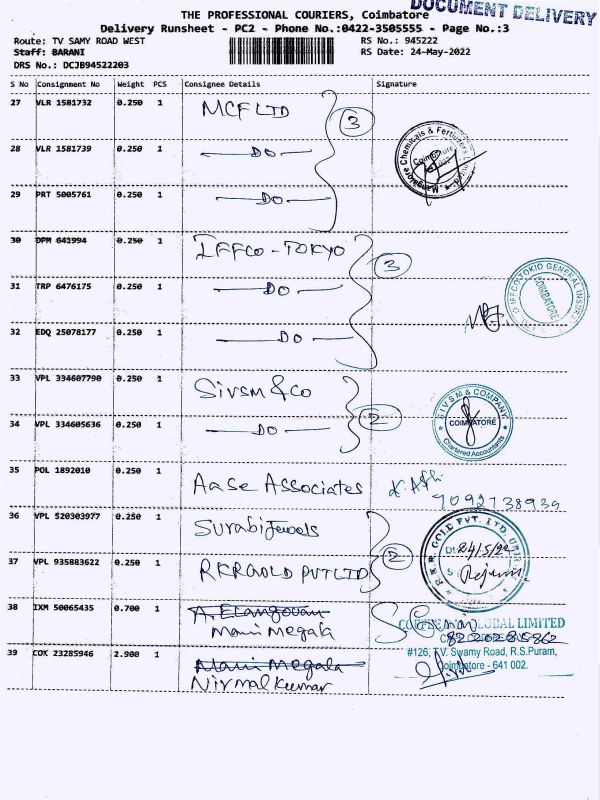 DOCUMENT DELIVERY
THE PROFESSIONAL COURIERS, Coimbatore
Delivery Runsheet - PC2 - Phone No.:0422-3505555 - Page No.:3
Route: TV SAMY ROAD WEST RS No.: 945222
Staff: BARANI RS Date: 24-May-2022
DRS No.: DCJB94522203
S No Consignment No Weight PCS Consignee Details Signature
27 VLR 1581732 0.250 1 MCF LTD 3
28 VLR 1581739 0.250 1 DO
Mangalore Chemicals & Fertilizers
Coimbatore
29 PRT 5005761 0.250 1 DO
30 DPM 641994 0.250 1 IFFCO - TOKYO 3
31 TRP 6476175 0.250 1 DO
IFFCO TOKIO GENERAL INSUR
COIMBATORE
32 EDQ 25078177 0.250 1 DO
33 VPL 334607790 0.250 1 Sivsm & Co 2
34 VPL 334605636 0.250 1 DO
SIVSM & COMPANY
COIMBATORE
Chartered Accountants
35 POL 1892010 0.250 1 Aase Associates
9092738939
36 VPL 520303977 0.250 1 Surabi Jewels 2
37 VPL 935883622 0.250 1 RKRGOLD PVT LTD
RKR GOLD PVT. LTD. UNIT
24/5/22
38 IXM 50065435 0.700 1 A. Elangovan
Mani Megala
GLOBAL LIMITED
#126, T.V. Swamy Road, R.S.Puram,
Coimbatore - 641 002.
39 COK 23285946 2.900 1 Mani Megala
Nirmal Kumar